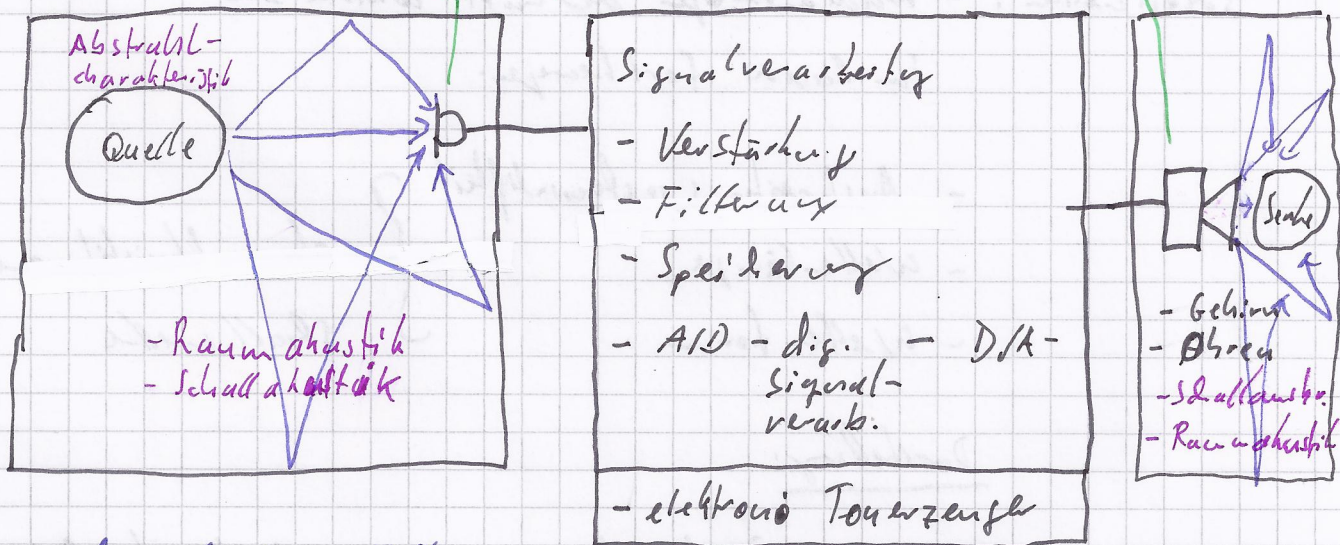 Abstrahl-
charakteristik
Quelle
- Raumakustik
- Schallakustik
Signalverarbeitung
- Verstärkung
- Filterung
- Speicherung
- A/D - dig. - D/A -
Signal-
verarb.
- elektroni Tonerzeuger
Senke
- Gehirn
- Ohren
- Schallausbr.
- Raumakustik